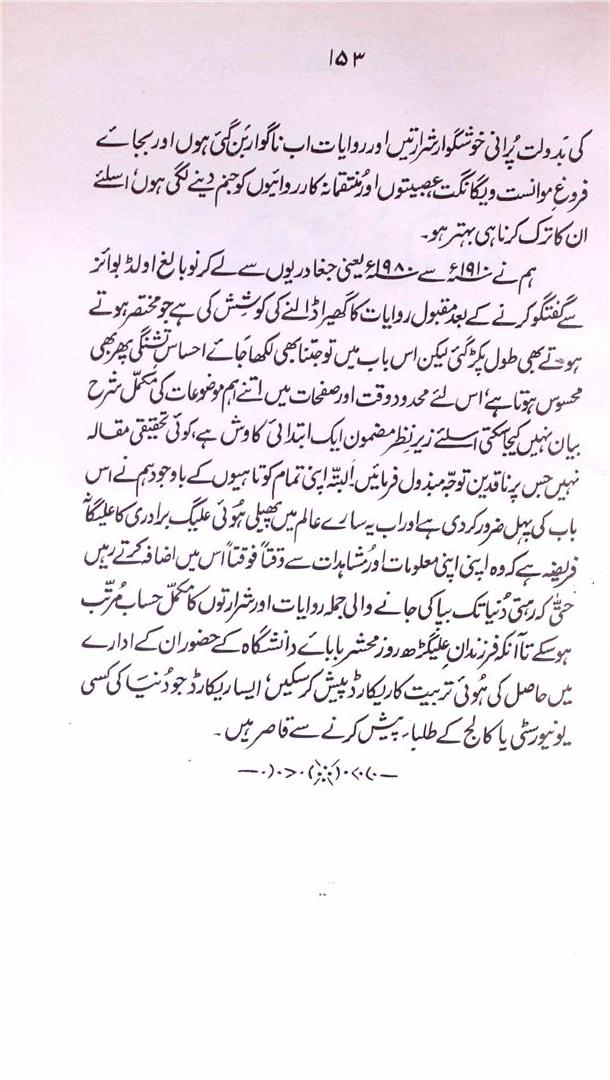 ۱۵۳
کی بَدولت پُرانی خوشگوار شرارتیں اور روایات اب ناگوار بَن گئی ہوں اور بجائے
فروغِ موانست و یگانگت عصبیتوں اور مُنتقمانہ کارروائیوں کو جنم دینے لگی ہوں، اسلئے
ان کا ترک کرنا ہی بہتر ہو۔
ہم نے ۱۹۱۰ء سے ۱۹۸۰ء یعنی جغادریوں سے لے کر نو بالغ اولڈ بوائز
سے گفتگو کرنے کے بعد مقبول روایات کا گھیرا ڈالنے کی کوشش کی ہے جو مختصر ہوتے
ہوتے بھی طول پکڑ گئی لیکن اس باب میں تو جتنا بھی لکھا جائے احساسِ تشنگی پھر بھی
محسوس ہوتا ہے، اس لئے محدود وقت اور صفحات میں اتنے اہم موضوعات کی مکمّل شرح
بیان نہیں کیجا سکتی اسلئے زیرِ نظر مضمون ایک ابتدائی کاوش ہے، کوئی تحقیقی مقالہ
نہیں جس پر ناقدین توجّہ مبذول فرمائیں۔ البتّہ اپنی تمام کوتاہیوں کے باوجود ہم نے اس
باب کی پہل ضرور کر دی ہے اور اب یہ سارے عالم میں پھیلی ہُوئی علیگ برادری کا علیگانہ
فریضہ ہے کہ وہ اپنی اپنی معلومات اور مُشاہدات سے وقتاً فوقتاً اس میں اضافہ کرتے رہیں
حتّٰی کہ رہتی دُنیا تک بپا کی جانے والی جملہ روایات اور شرارتوں کا مکمّل حساب مُرتّب
ہو سکے تا آنکہ فرزندانِ علیگڑھ روزِ محشر بابائے دانشگاہ کے حضور ان کے ادارے
میں حاصل کی ہُوئی تربیت کا ریکارڈ پیش کر سکیں، ایسا ریکارڈ جو دُنیا کی کسی
یونیورسٹی یا کالج کے طلباء پیش کرنے سے قاصر ہیں۔